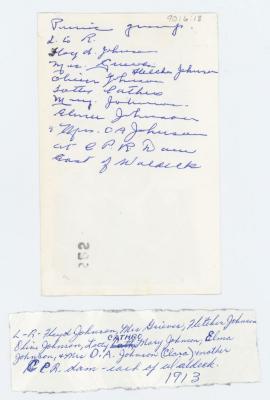 Picnic group.
9016:18
L to R.
Floyd Johnson
Mrs. Grieves
Fletcher Johnson
Olive Johnson
Lottie Cathro
Mary Johnson.
Elma Johnson
& Mrs. O A Johnson
at C P R Dam
East of Waldeck
L-R- Floyd Johnson, Mrs Grieves, Fletcher Johnson
Olive Johnson, Lotty CATHRO, Mary Johnson, Elma
Johnson, & Mrs O.A. Johnson (Clara) mother
CPR. dam - east of Waldeck.
1913